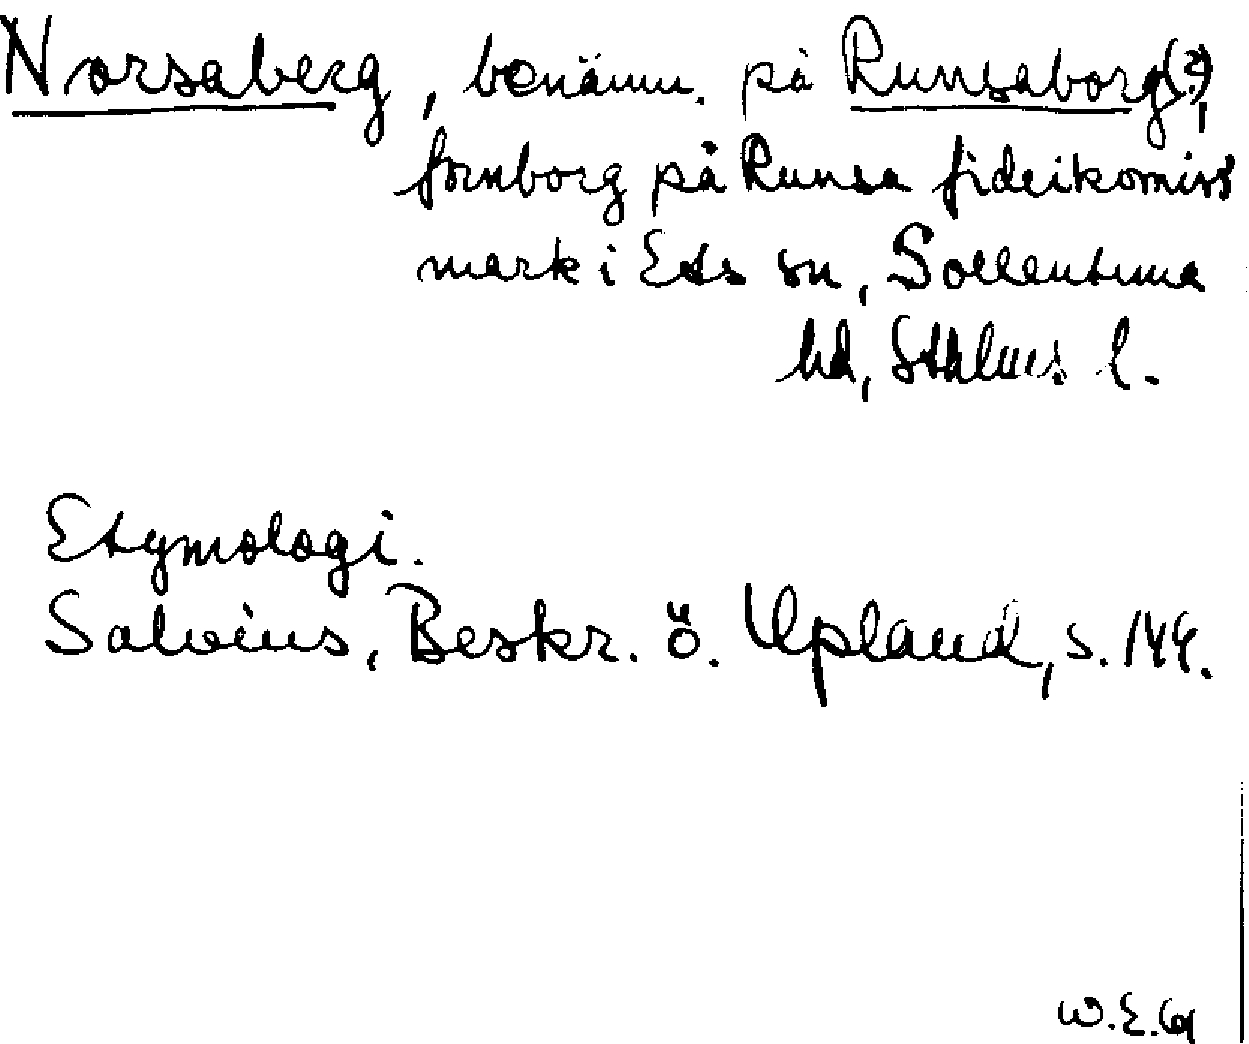 Norsaberg, benämn. på Runsaborg(?),
fornborg på Runsa fideikomiss
mark i Eds sn, Sollentuna
hd, Sthlms l.
Etymologi.
Salvius, Beskr. ö. Upland, s. 144.
W.E.